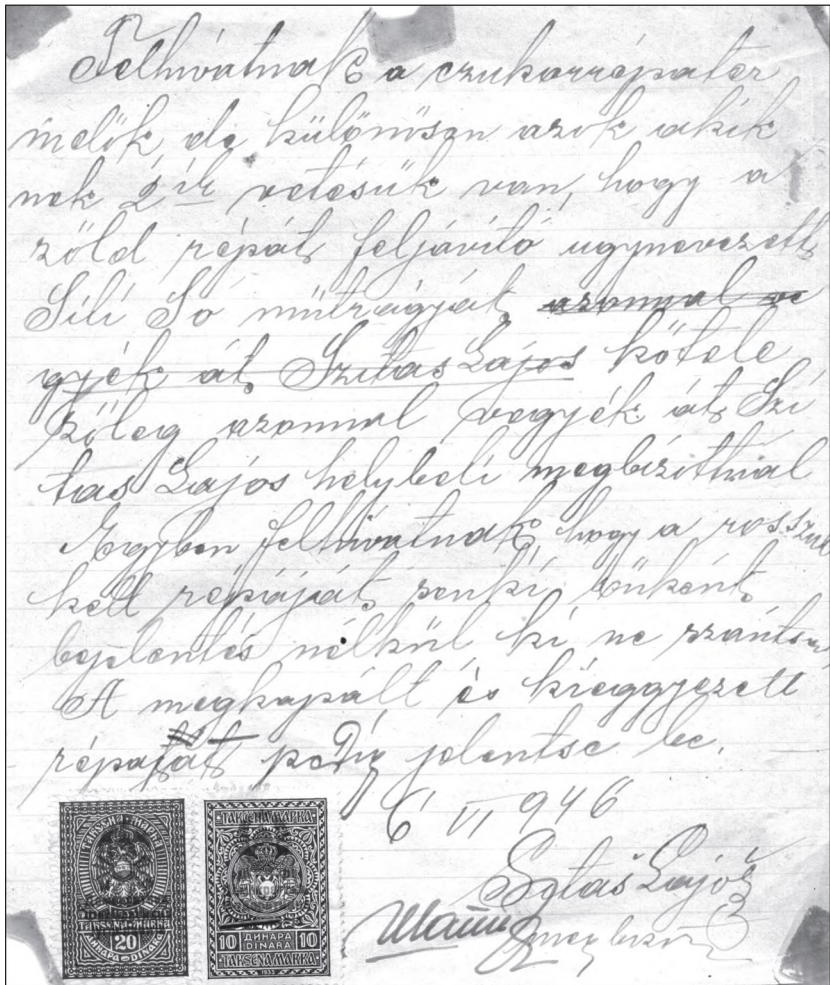 Felhivatnak a czukorrépater
melök de különösen azok akik
nek vetésük van, hogy a
zöld répát feljávitó ugynevezett
Sili Só mütrágyát azonnal ve
gyék át Szitas Lajos kötele
zöleg azonnal vegyék át Szi
tas Lajos helybeli megbizottnál
Egyben felhivatnak hogy a rosszul
kelt répáját senki önként
bejelentés nélkül ki ne szántsa
A megkapált és kieggyezett
répáját pedig jelentse be.
6 VI 946
Lajos
ТАКСЕНА МАРКА
TAKSENA MARKA
20
ДИНАРА DINARA
TAKSENA MARKA
10 ДИНАРА DINARA 10
TAKSENA MARKA